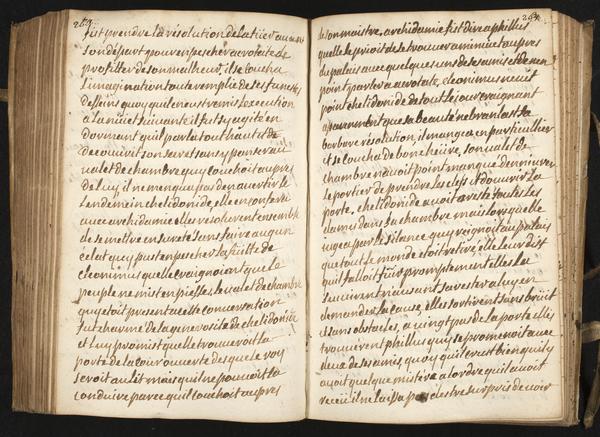 263
fist prendre la résolution de la tuer avant
son départ pour empescher acrotate de
profitter de son malheur, il se coucha
l'imagination toute remplie de ses funestes
dessins quoy quil en eust remis lexecution
a la nuict suivante il fut sy agité en
dormant quil parla tout haut et de
decouvrit son secret sans y penser au
valet de chambre quy couchoit aupres
de luy, il ne menqua pas den avertir le
lendemein chelidonide, elle en confera
avec archidamie elles resolurent ensemble
de se mettre en sureté sans faire aucun
eclat quy pust empescher la fuitte de
cleonimus quelle craignoient que le
peuple ne mist en piesses, le valet de chambre
quy etoit present a cette conversation
fut charmé de la generosité de chelidonide
et luy promist quelle trouveroit la
porte de la cour ouverte des que le roy
seroit au lit mais quil ne pouvoit la
conduire parce quil couchoit aupres
264
de son maistre, archidamie fist dire a phillus
quelle le prioit de se trouver a minuict aupres
du palais avec quelques uns de ses amis et de nen
point parler a acrotate, cleonimus ne vit
point chelidonide de tout le jour craignant
aparemment que sa beauté nebranlast sa
barbare résolution, il mangea en particullier
et se coucha de bonne heure, son valet de
chambre n'avoit point manqué denivrer
le portier de prendre les clefs et d'ouvrir la
porte, chelidonide avoit aresté toutes les
dames dans sa chambre mais lors quelle
jugea par le silance quy reignoit au palais
que tout le monde etoit retiré, elle leur dist
quil falloit fuir promptement elles la
suivirent n'ausant sarester a luy en
demander la cause, elles sortirent sans bruit
et sans obstacles, a vingt pas de la porte elles
trouverent phillus quy se promenoit avec
deux de ses amis, quoy quil crust bien quil y
avoit quelque mistere a lordre quil avoit
receu il ne laissa pas destre surpris de voir